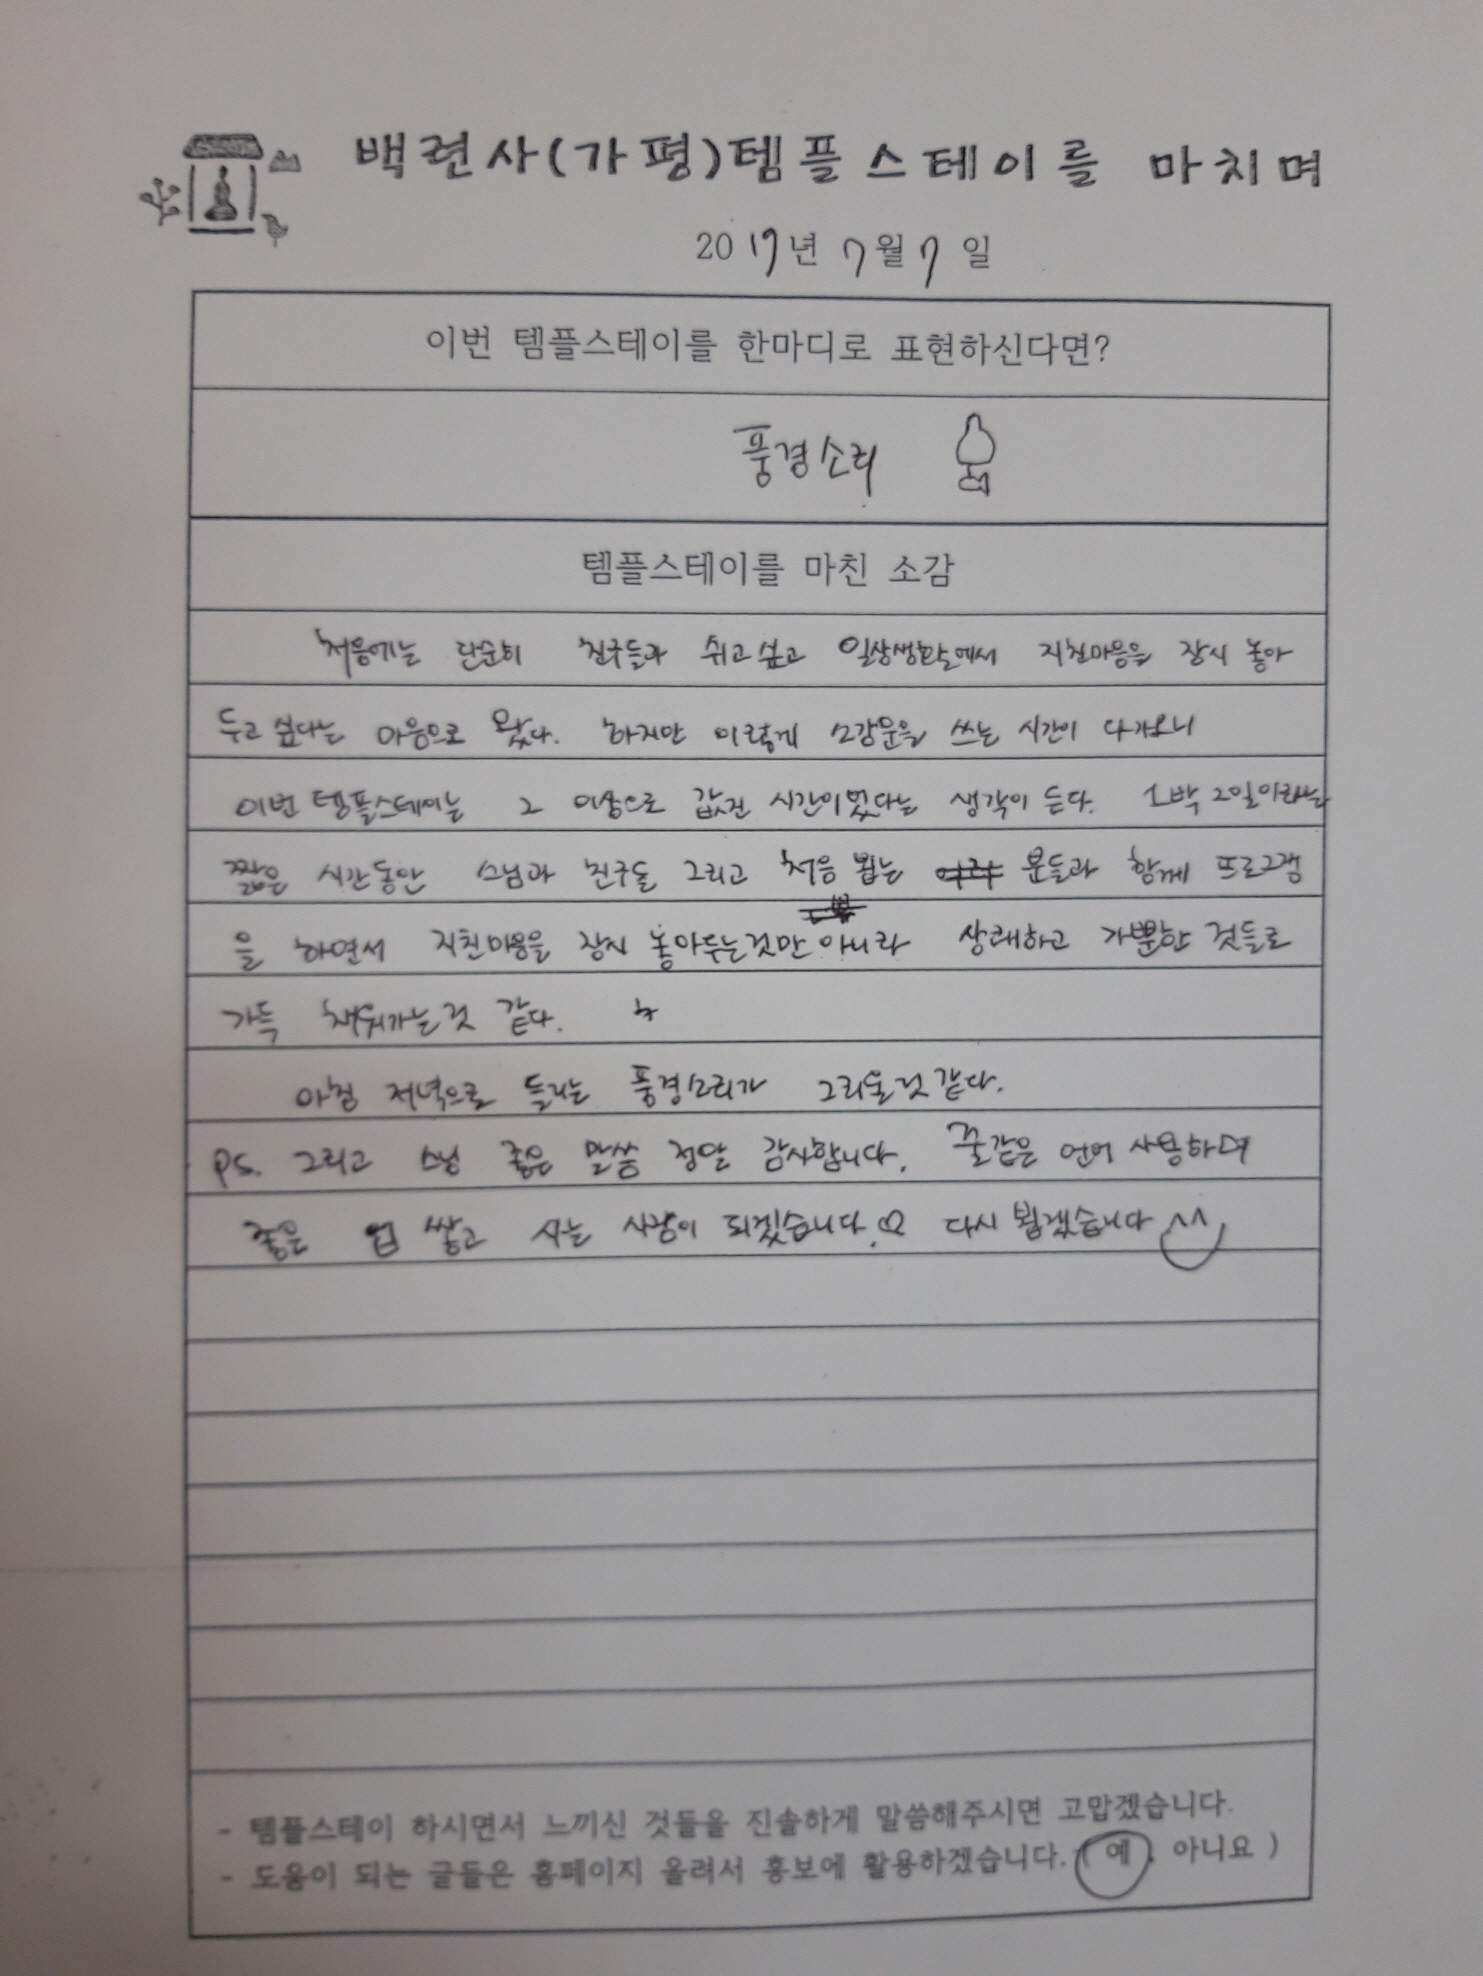 백련사(가평)템플스테이를 마치며
2017년 7월 7일
이번 템플스테이를 한마디로 표현하신다면?
풍경소리
템플스테이를 마친 소감
처음에는 단순히 친구들과 쉬고싶고 일상생활에서 지친마음을 잠시 놓아
두고 싶다는 마음으로 왔다. 하지만 이렇게 소감문을 쓰는 시간이 다가오니
이번 템플스테이는 그 이상으로 값진 시간이었다는 생각이 든다. 1박 2일이라는
짧은 시간동안 스님과 친구들 그리고 처음 뵙는 분들과 함께 프로그램
을 하면서 지친마음을 잠시 놓아두는것만 아니라 상쾌하고 가뿐한 것들로
가득 채워가는것 같다.
아침 저녁으로 들리는 풍경소리가 그리울것같다.
PS. 그리고 스님 좋은 말씀 정말 감사합니다. 꿀같은 언어 사용하며
좋은 업 쌓고 사는 사람이 되겠습니다.♡ 다시 뵙겠습니다 ^^
- 템플스테이 하시면서 느끼신 것들을 진솔하게 말씀해주시면 고맙겠습니다.
- 도움이 되는 글들은 홈페이지 올려서 홍보에 활용하겠습니다. ( 예 , 아니요 )